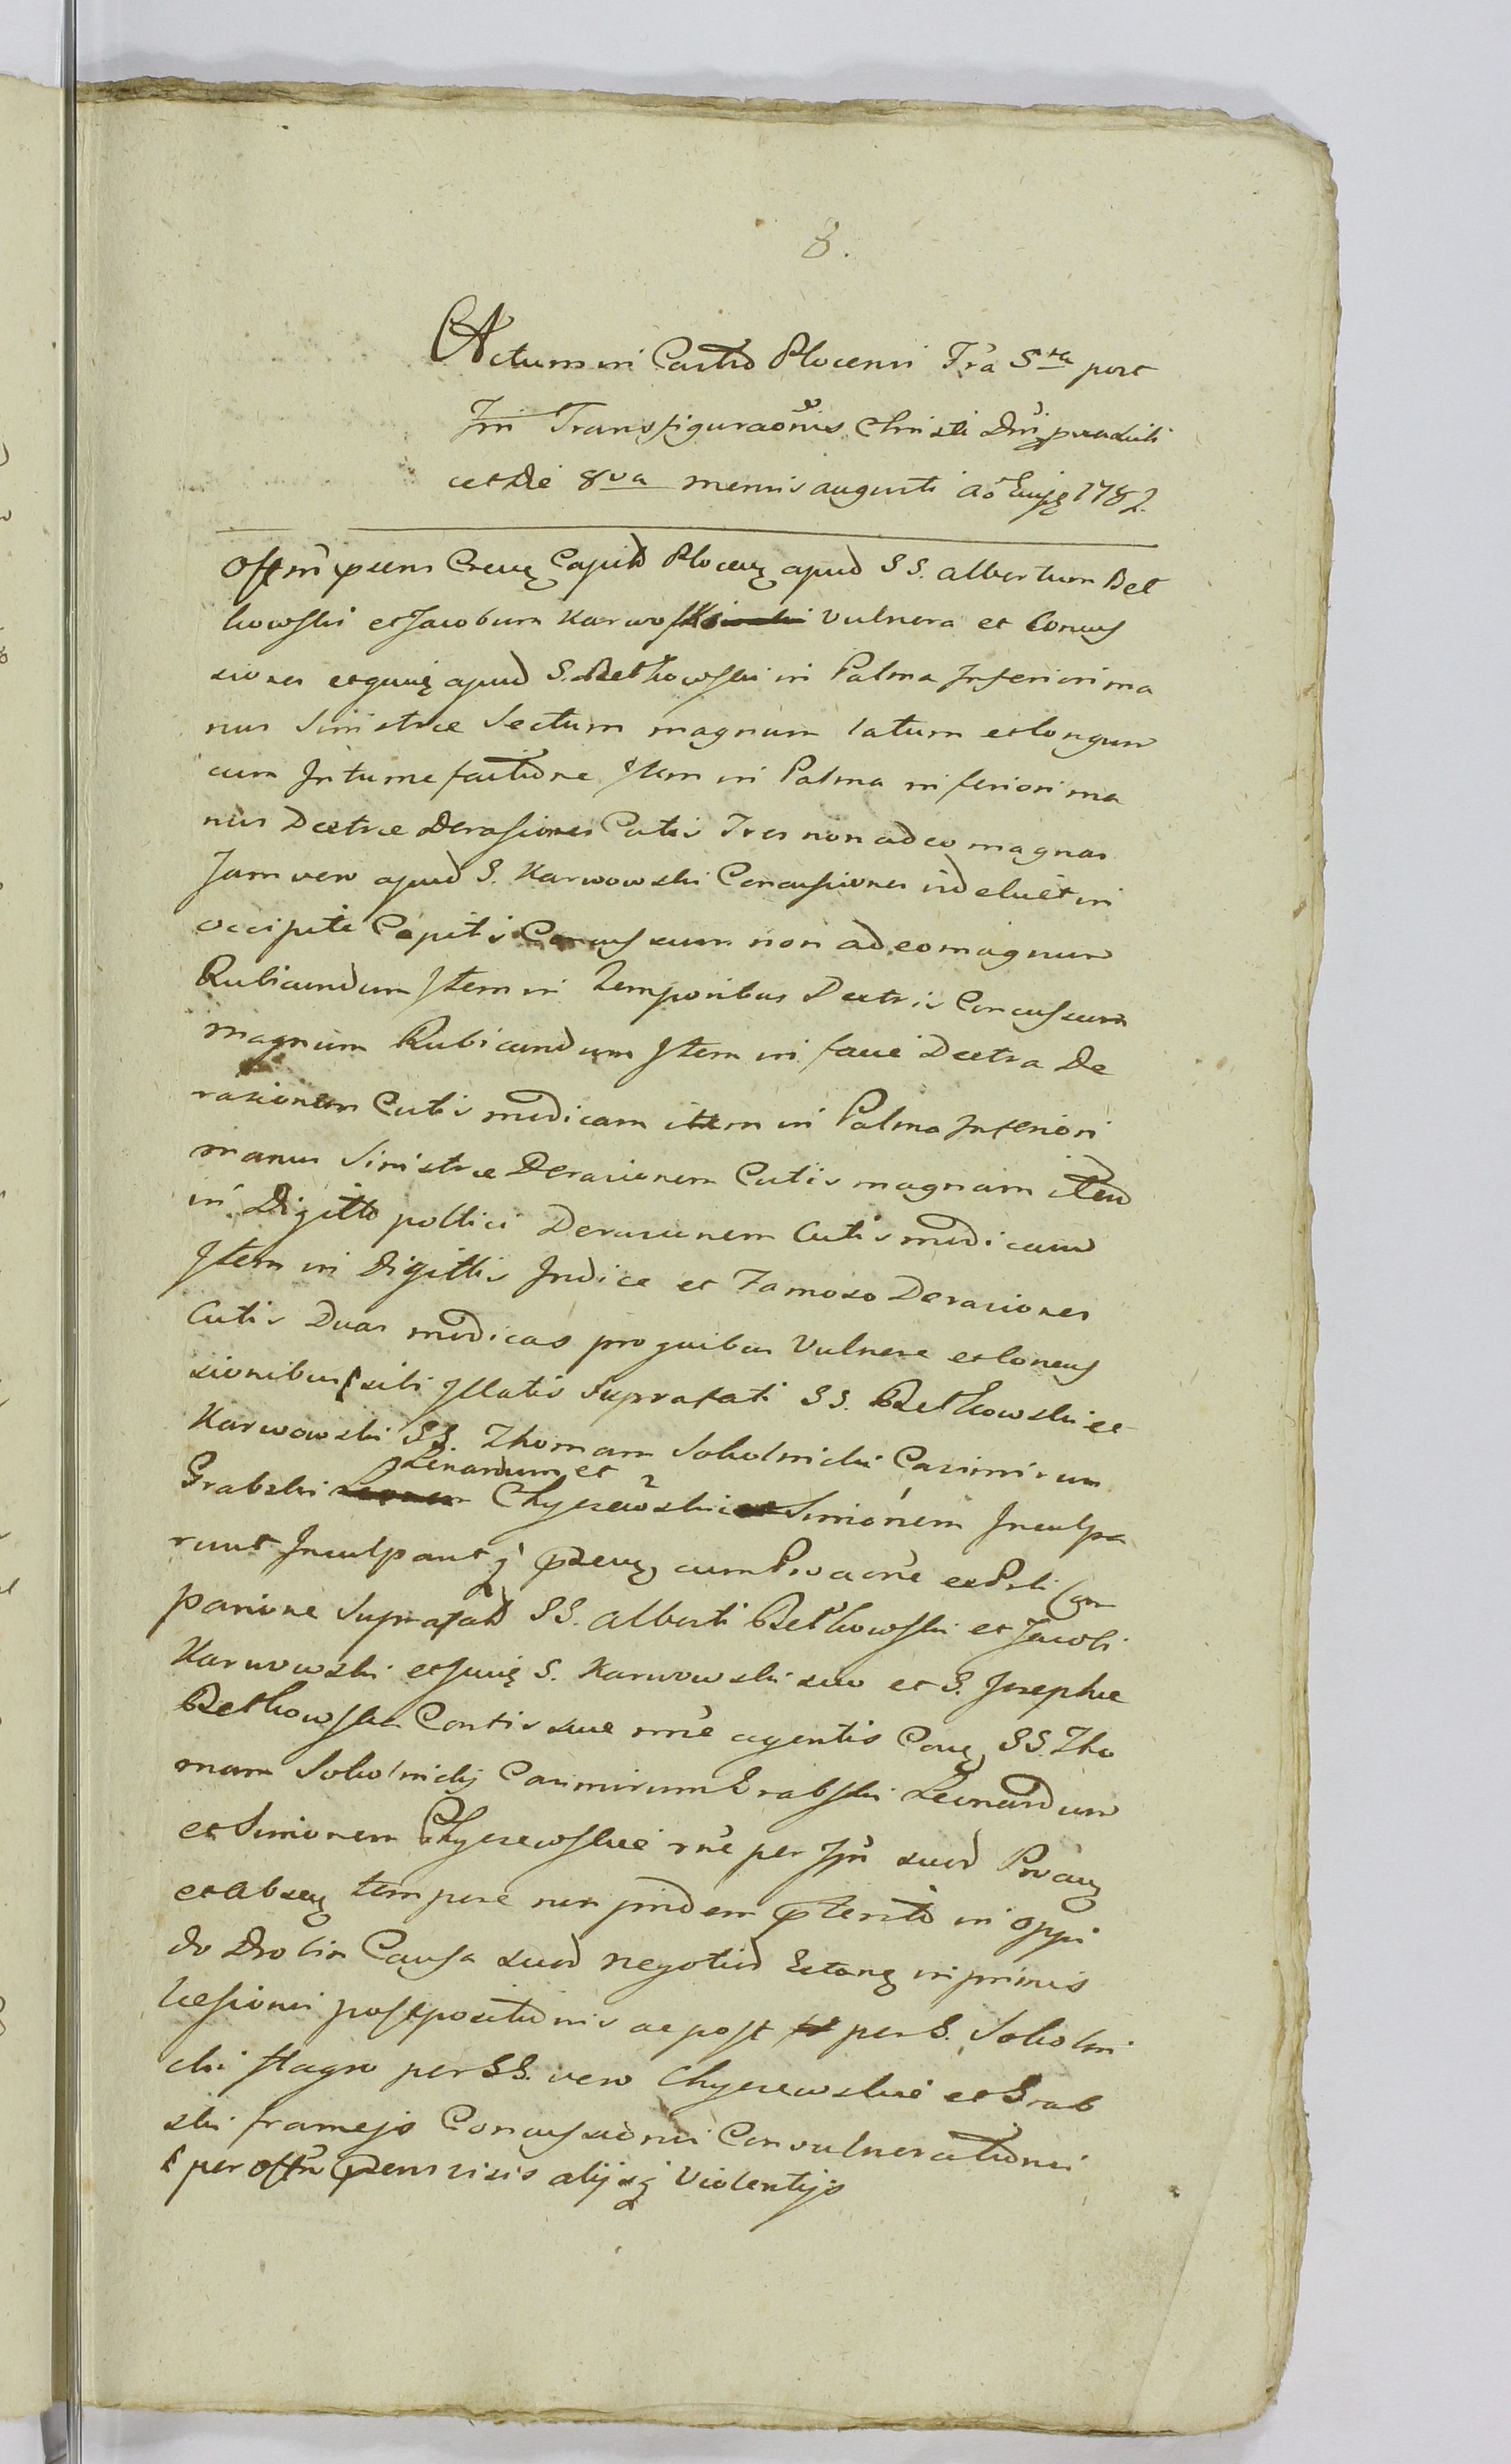 8.
Actum in Castro Plocensi Fra 5ta post
Fm Transfiguraonis Christi Dni
et Die 8va mensis augusti ao Eujq 1782
Offm pens Crevq Capit Plocenq apud SS. Albertum Bet
kowski et Jacobum Karwoski vulnera et Concus
siones et quiq apud S. Betkowski in Palma Inferiori ma
nus Sinistræ Sectum magnum latum et longum
cum Intumefactione Item in Palma inferiori ma
nus Dextræ Derasiones Cutis Tres non adeo magnas
Jam vero apud S. Karwowski Concusiones in
occipite Capitis Concussum non adeo magnum
Rubicundum Item in Temporibus Dextris Concussum
magnum Rubicundum Item in facie Dextra De
rasionem Cutis modicam item in Palma Inferiori
manus Sinistræ Derasionem Cutis magnam item
in Digitto pollici Derasionem Cutis modicam
Item in Digittis Indice et Famoso Derasiones
Cutis Duas modicas pro quibus Vulnere et Concus
sionibus sibi Illatis Suprafati SS. Betkowski et
Karwowski SS. Thomam Sokolnicki Casimirum
Lenardum et
Grabski Chyczewski Simonem Inculpa
runt Inculpantq cum Prvaone et Prti Com
parione Suprafat SS. Alberti Betkowski et Jacobi
Karwowski et quiq S. Karwowski suo et S. Josephæ
Betkowska Contis suæ nne agentis Conq SS. Tho
mam Sokolnickj Casimirum Grabski Leonardum
et Simonem Chyczewskie rne per Ipm suos Prvanq
et Absenq tempore non pridem pterito in Oppi
do Drobin Causa suor negotior Extanq in primis
læsioni postpositionis ac post per S. Sokolni
cki flagro per SS. vero Chyczewskie et Grab
ski frameis Concussadni Convulnerationi
per offm pens visis alijsq Violentijs